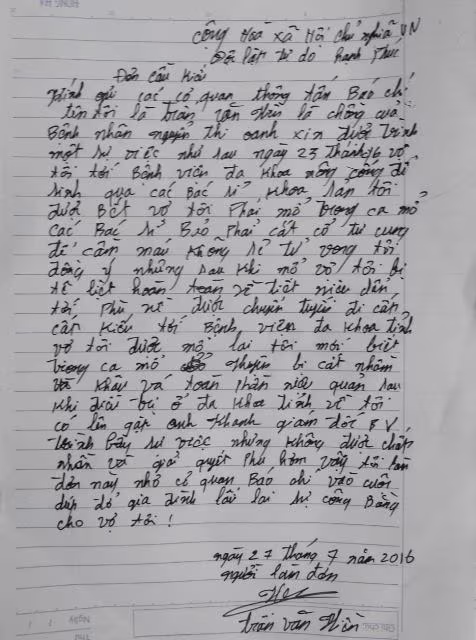 Công Hoà Xã Hội chủ nghĩa VN
Độc lập tự do hạnh Phúc
Đơn cầu Kiếu
Kính gửi các cơ quan thông tấn Báo chí
tên tôi là trần văn Hiền là chồng của
Bệnh nhân nguyễn thị oanh xin được trình
một sự việc như sau ngày 23 tháng 6 vợ
tôi tới Bệnh viện đa Khoa nông cống để
sinh qua các Bác sĩ Khoa sản tôi
được Biết vợ tôi Phải mổ trong ca mổ
các Bác sĩ Bảo Phải cắt cổ tử cung
để cầm máu Không sẽ tử vong tôi
đồng ý nhưng sau Khi mổ vợ tôi bị
tê liệt hoàn toàn về tiết niệu đến
tối Phù nề được chuyển tuyến đi cấp
cứu Kiếu tới Bệnh viện đa Khoa tỉnh
vợ tôi được mổ lại tôi mới biết
trong ca mổ thuyền bị cắt nhầm
và Khâu vá toàn Phần niệu quản sau
Khi điều trị ở đa Khoa tỉnh về tôi
có lên gặp anh Khanh giám đốc BV
trình bầy sự việc nhưng Không được chấp
nhận và giải quyết Phù hợp vậy tôi làm
đơn này nhờ cơ quan Báo chí vào cuộc
giúp đỡ gia đình lấy lại sự công Bằng
cho vợ tôi !
ngày 27 tháng 7 năm 2016
người làm đơn
trần văn Hiền
Ngày